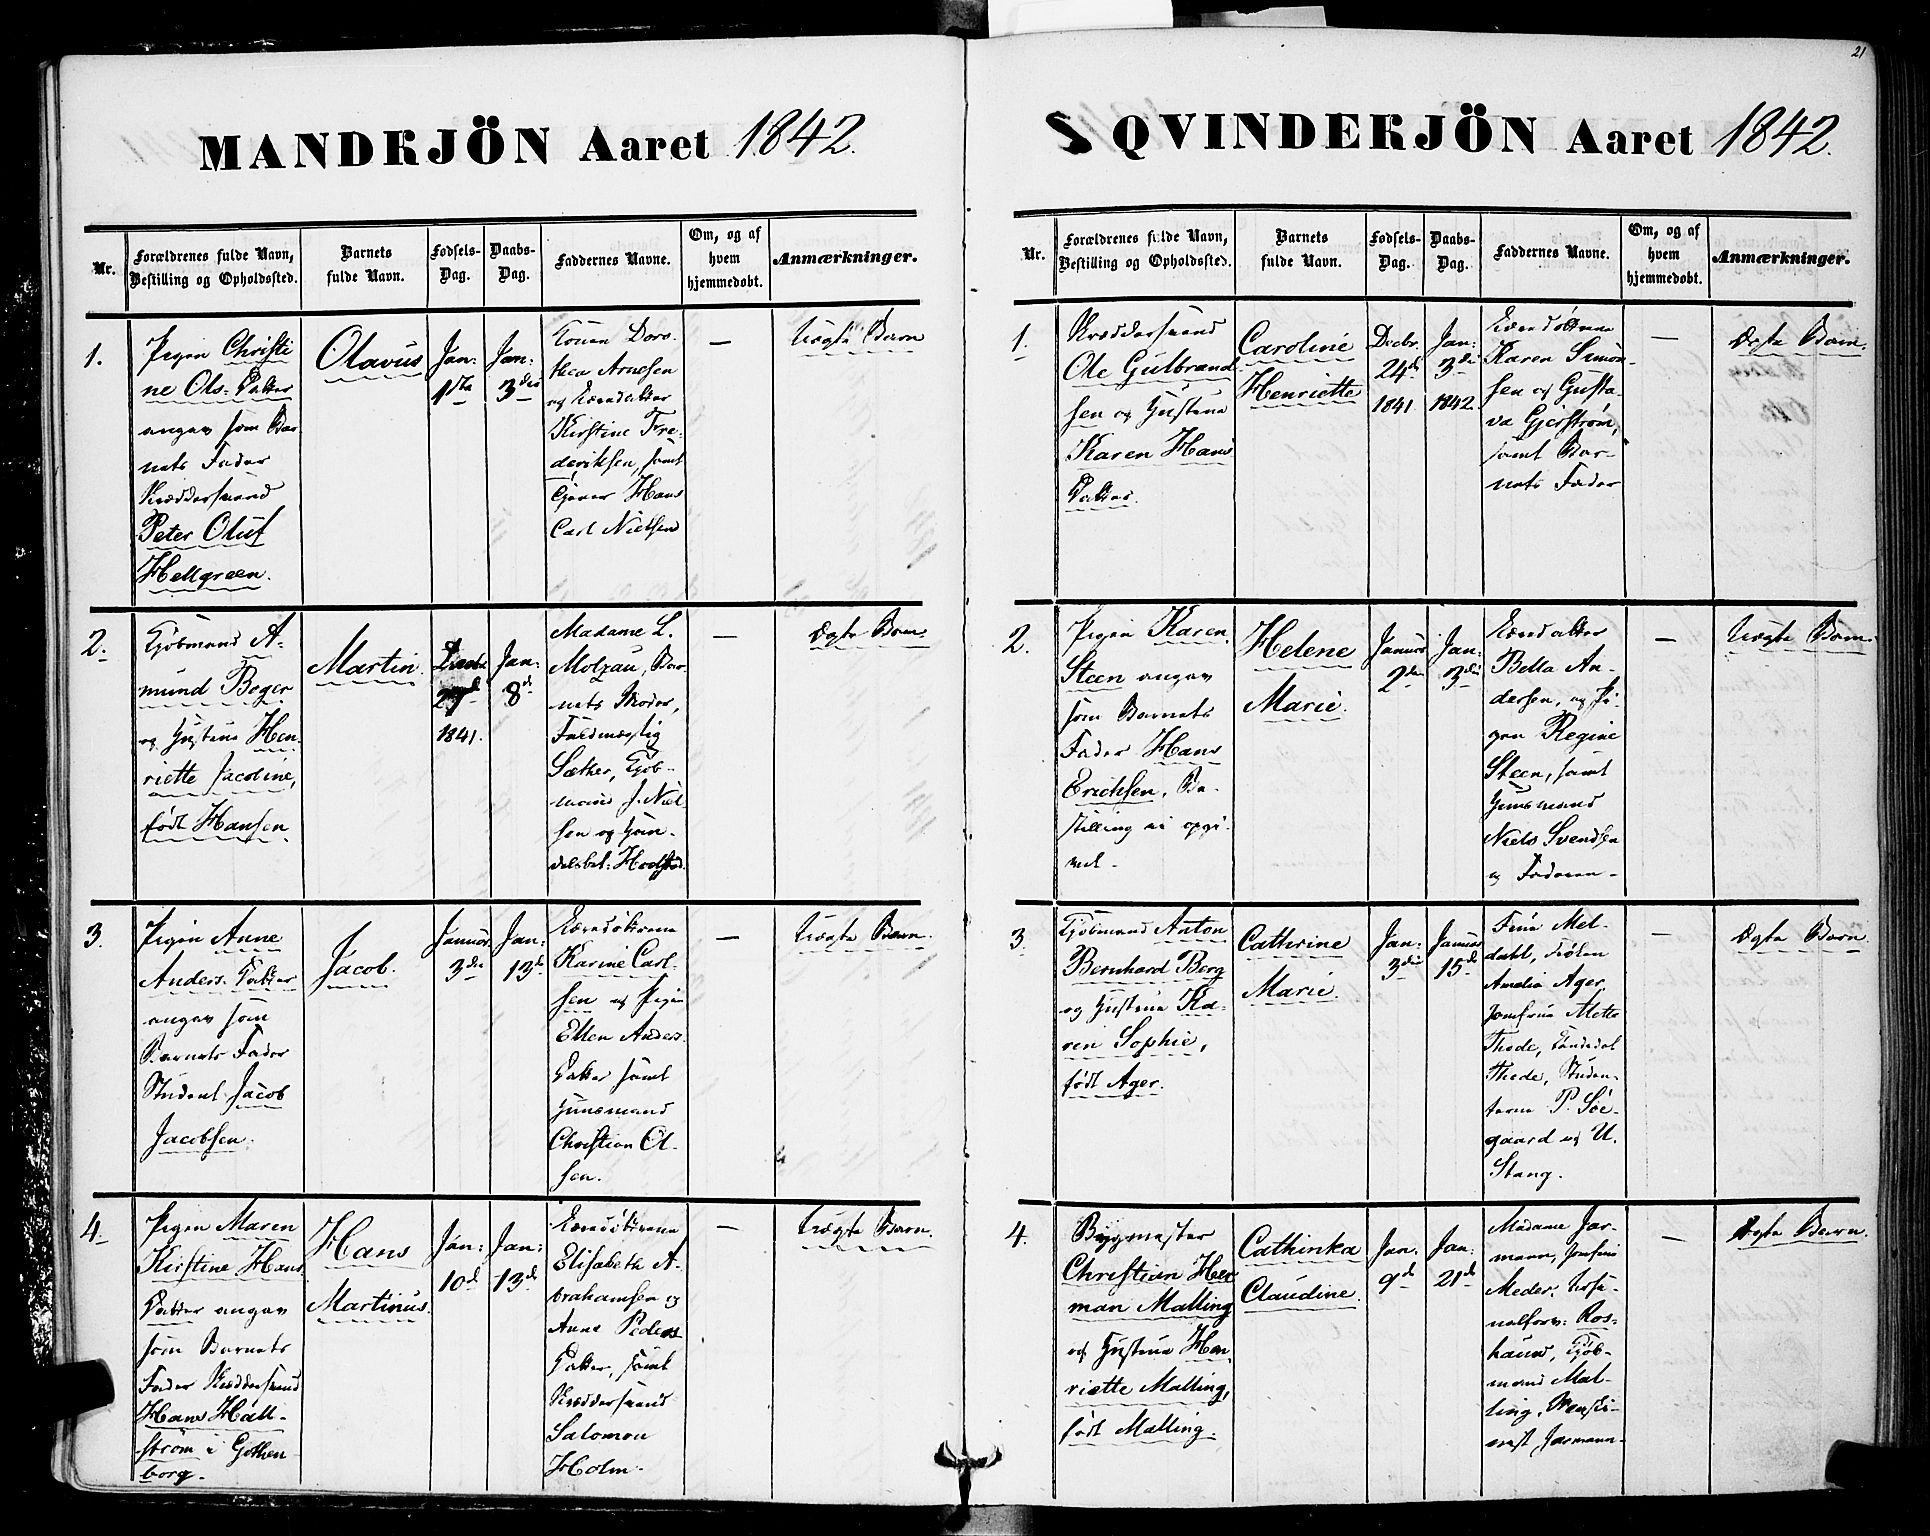 21
MANDKJÖN Aaret 1842.
Nr.
Forældrenes fulde Navn,
Bestilling og Opholdssted.
Barnets
fulde Navn.
Fødsels-
Dag.
Daabs-
Dag.
Faddernes Navne.
Om, og af
hvem
hjemmedøbt.
Anmærkninger.
1.
Pigen Christi
ne Ols-Datter
angav som Bar
nets Fader
Peter Oluf
Hellgreen.
Olavus
Jan:
1ste
Jan:
3die
Konen Doro-
thea Arnesen
Kirstine Fre-
deriksen, samt
Hans
Carl Nielsen
—
Uægte Barn
2.
Kjöbmand A-
mund Boger
og Hustrue Hen-
riette Jacobine,
född Hansen.
Martin
27de
1841.
Jan:
8de
Madame L.
Molzau, Bar-
nets Moder,
Fuldmægtig
Sæther, Kjöb-
mand J. Niel-
sen og Han-
delsbet:
—
Ægte Barn.
3.
Pigen Anne
Anders-Datter
angav som
Barnets Fader
Student Jacob
Jacobsen.
Jacob.
Januar
3die
Jan:
13de
Karine Carl-
sen og Pigen
Ellen Anders-
Datter samt
Huusmand
Christian Ol-
sen.
—
Uægte Barn.
4.
Pigen Maren
Kirstine Hans-
Datter angav
som Barnets
Fader
Hans Häll-
ström i Gothen-
borg.
Hans
Martinus.
Jan:
10de
Jan:
13de
Elisabeth A-
brahamsen og
Anne Peders-
Datter, samt
Salomon
Holm.
—
Uægte Barn.
QVINDEKJÖN Aaret 1842.
Nr.
Forældrenes fulde Navn,
Bestilling og Opholdssted.
Barnets
fulde Navn.
Fødsels-
Dag.
Daabs-
Dag.
Faddernes Navne.
Om, og af
hvem
hjemmedøbt.
Anmærkninger.
1.
Ole Gulbrand
sen og Hustrue
Karen Hans
Datter.
Caroline
Henriette
Decbr.
24de
1841.
Jan:
3die
1842.
Karen Simon
sen og Gusta-
va Gjerström,
samt Bar-
nets Fader
—
Ægte Barn.
2.
Pigen Karen
Steen angav
som Barnets
Fader Hans
Erichsen, Be-
stilling ei opgi-
vet.
Helene
Marie.
Januar
2den
Jan:
3die
Bella An-
dersen, og Pi-
gen Regine
Steen, samt
Huusmand
Niels Svendsen
og Faderen.
—
Uægte Barn.
3
Kjöbmand Anton
Bernhard Berg
og Hustrue Ka-
ren Sophie,
född Ager.
Cathrine
Marie.
Jan:
3die
Januar
15de
Frue Mel-
dahl, Fröken
Amalia Ager,
Jomfrue Mette
Thode,
Thode, Studen-
terne P. Söe-
gaard og U.
Stang.
—
Ægte Barn
4.
Bygmester
Christian Her
man Malling
og Hustrue Hen-
riette Malling,
född Malling.
Cathinka
Claudine.
Jan:
9de
Jan:
21de
Madame Jar-
mann, Jomfrue
Meder,
Ros-
haue, Kjöb-
mand Mal-
ling,
Jarmann.
—
Ægte Barn.